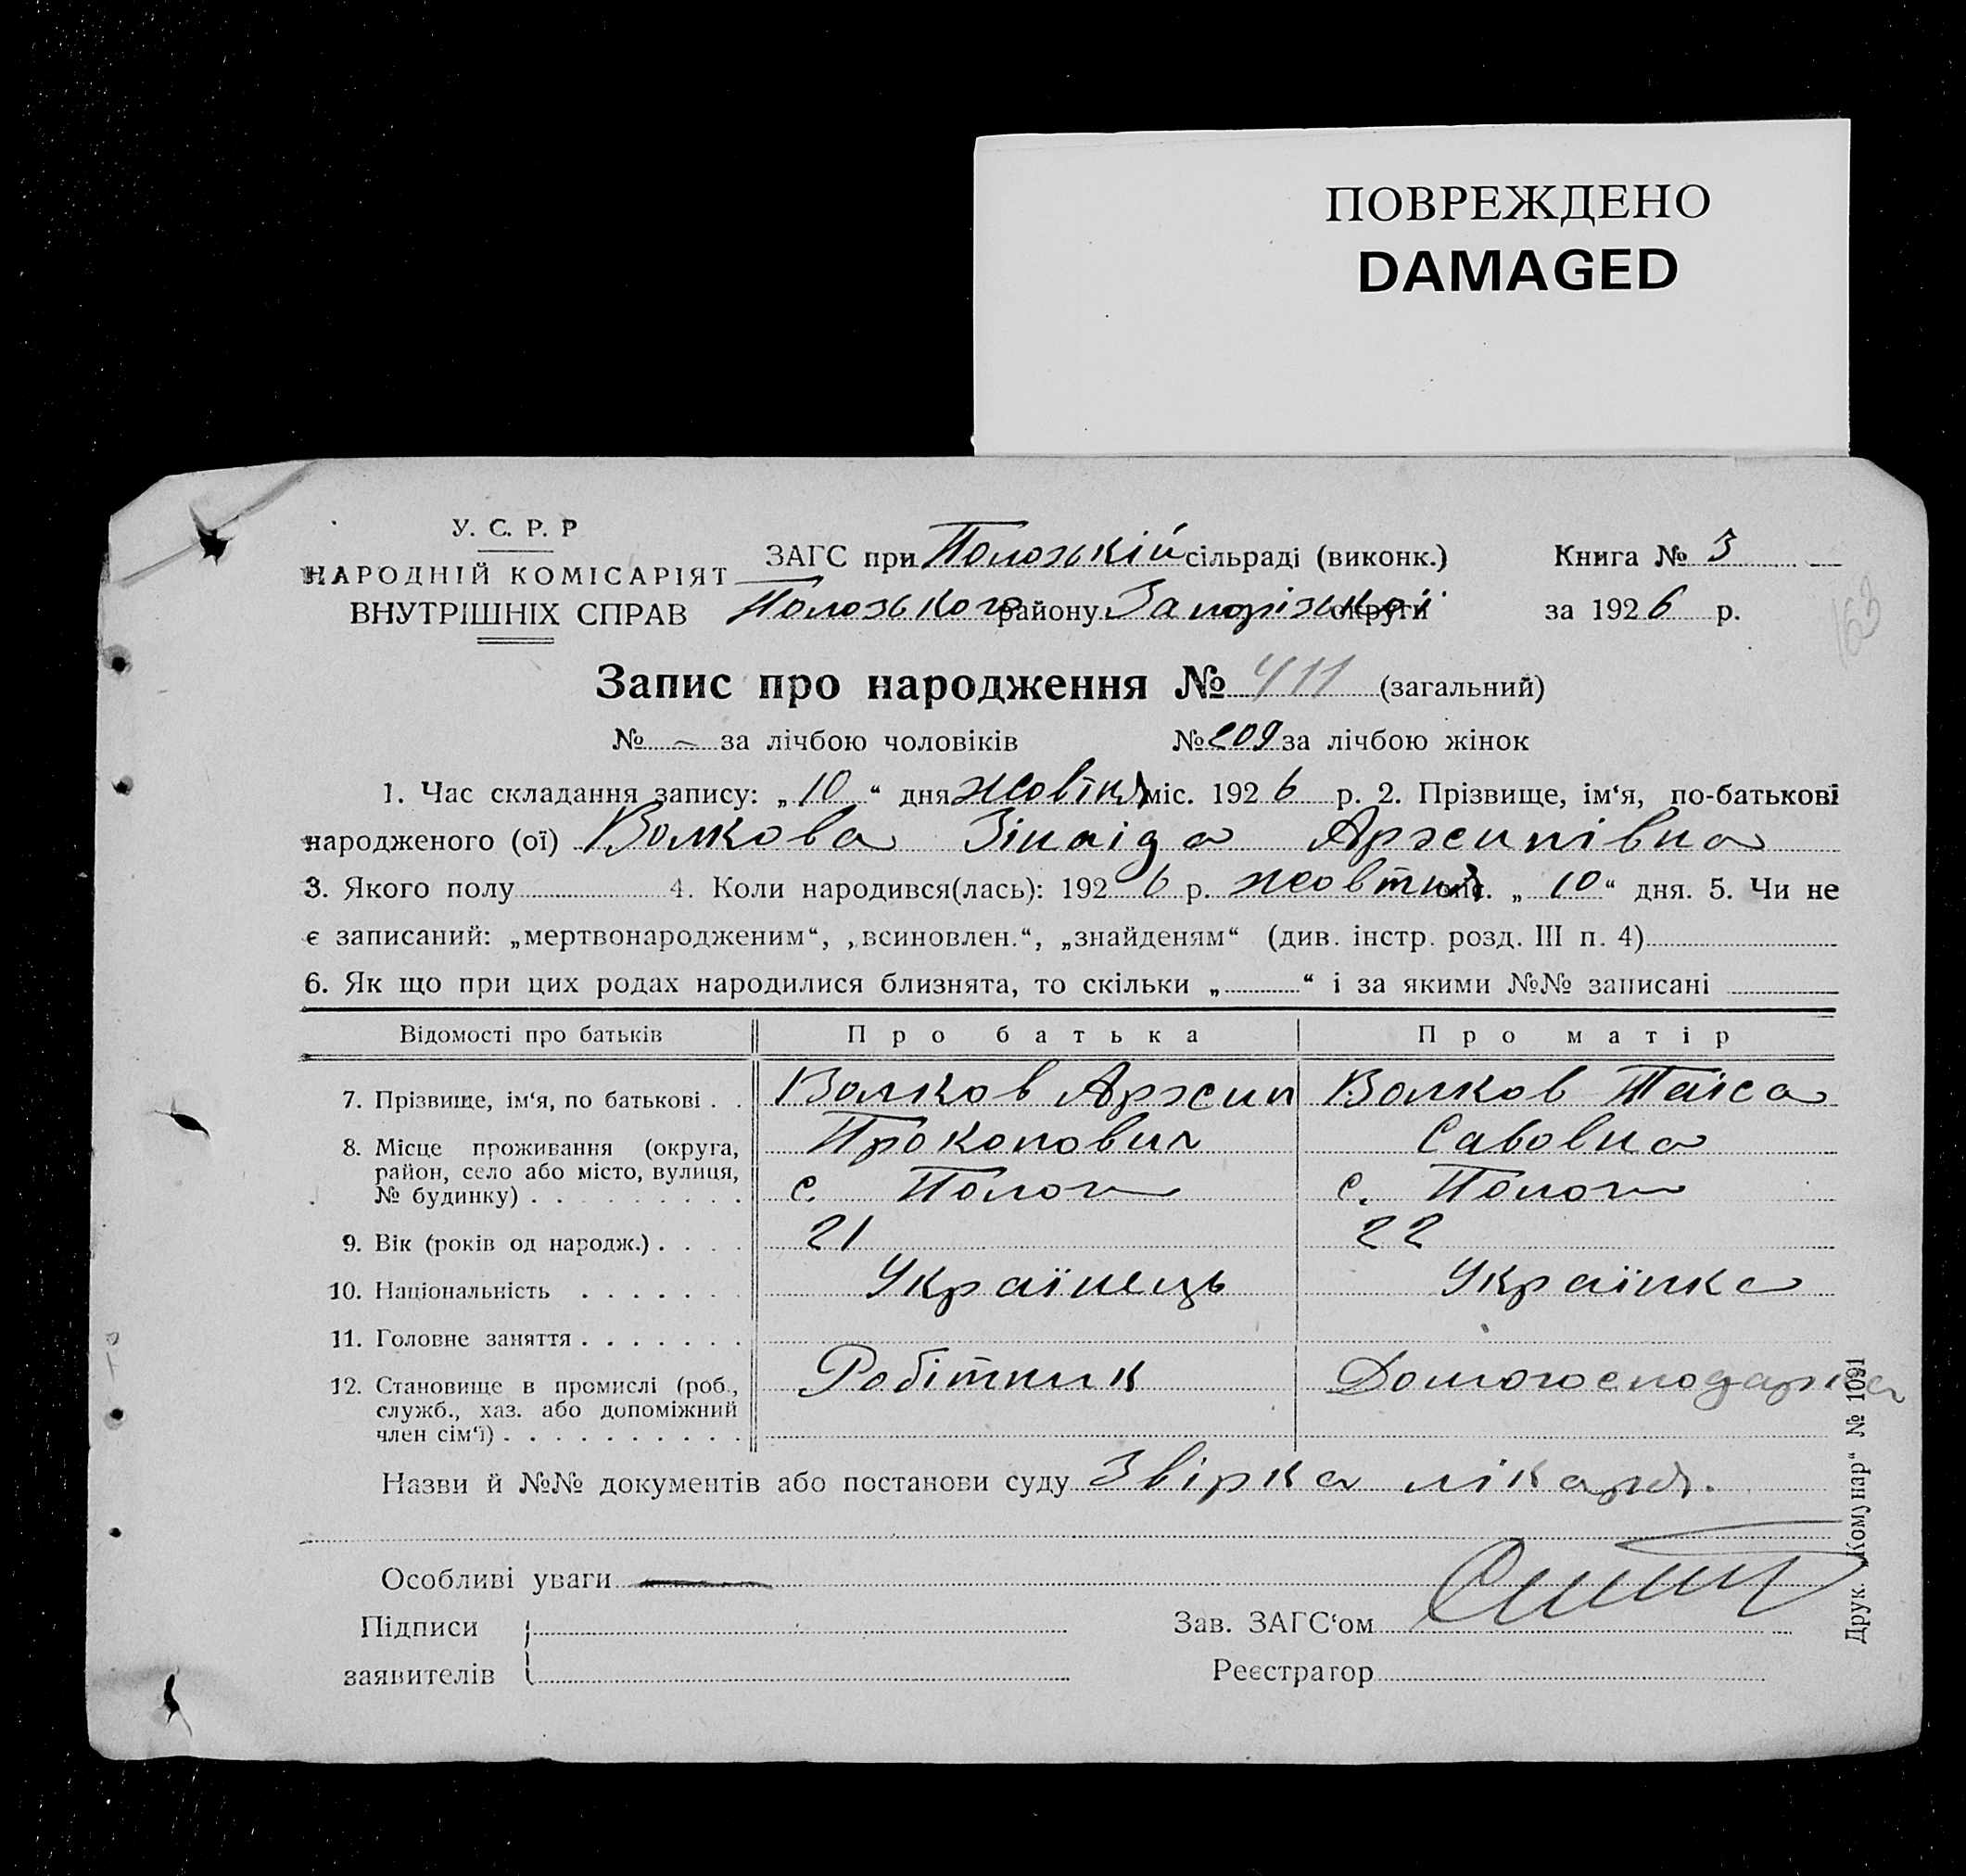 ПОВРЕЖДЕНО
DAMAGED
У. С. Р. Р
НАРОДНІЙ КОМІСАРІЯТ
ВНУТРІШНІХ СПРАВ
ЗАГС при Пологській сільраді (виконк.)
Пологського району Запоріжської округи
Книга № 3
за 1926 р.
163
Запис про народження № 411 (загальний)
№ — за лічбою чоловіків № 209 за лічбою жінок
1. Час складання запису: „10“ дня жовтня міс. 1926 р. 2. Прізвище, ім‘я, по-батькові
народженого (ої) Волкова Зінаіда Архипівна
3. Якого полу 4. Коли народився(лась): 1926 р. жовтня міс. „10“ дня. 5. Чи не
є записаний: „мертвонародженим“, „всиновлен.“, „знайденям“ (див. інстр. розд. III п. 4)
6. Як що при цих родах народилися близнята, то скільки „ “ і за якими №№ записані
Відомості про батьків Про батька Про матір
7. Прізвище, ім‘я, по батькові . . Волков Архип Волков Таіса
8. Місце проживання (округа, Прокопович Савовна
район, село або місто, вулиця,
№ будинку) . . . . . . . . . с. Пологи с. Пологи
9. Вік (років од народж.) . . . . 21 22
10. Національність . . . . . . . Українець Українка
11. Головне заняття . . . . . . .
12. Становище в промислі (роб., Робітник Домогосподарка
служб., хаз. або допоміжний
член сім‘ї) . . . . . . . . . .
Назви й №№ документів або постанови суду Звірка лікаря.
Особливі уваги —
Підписи
заявителів
Зав. ЗАГС‘ом
Реєстратор
Друк. „Комунар“ № 1091